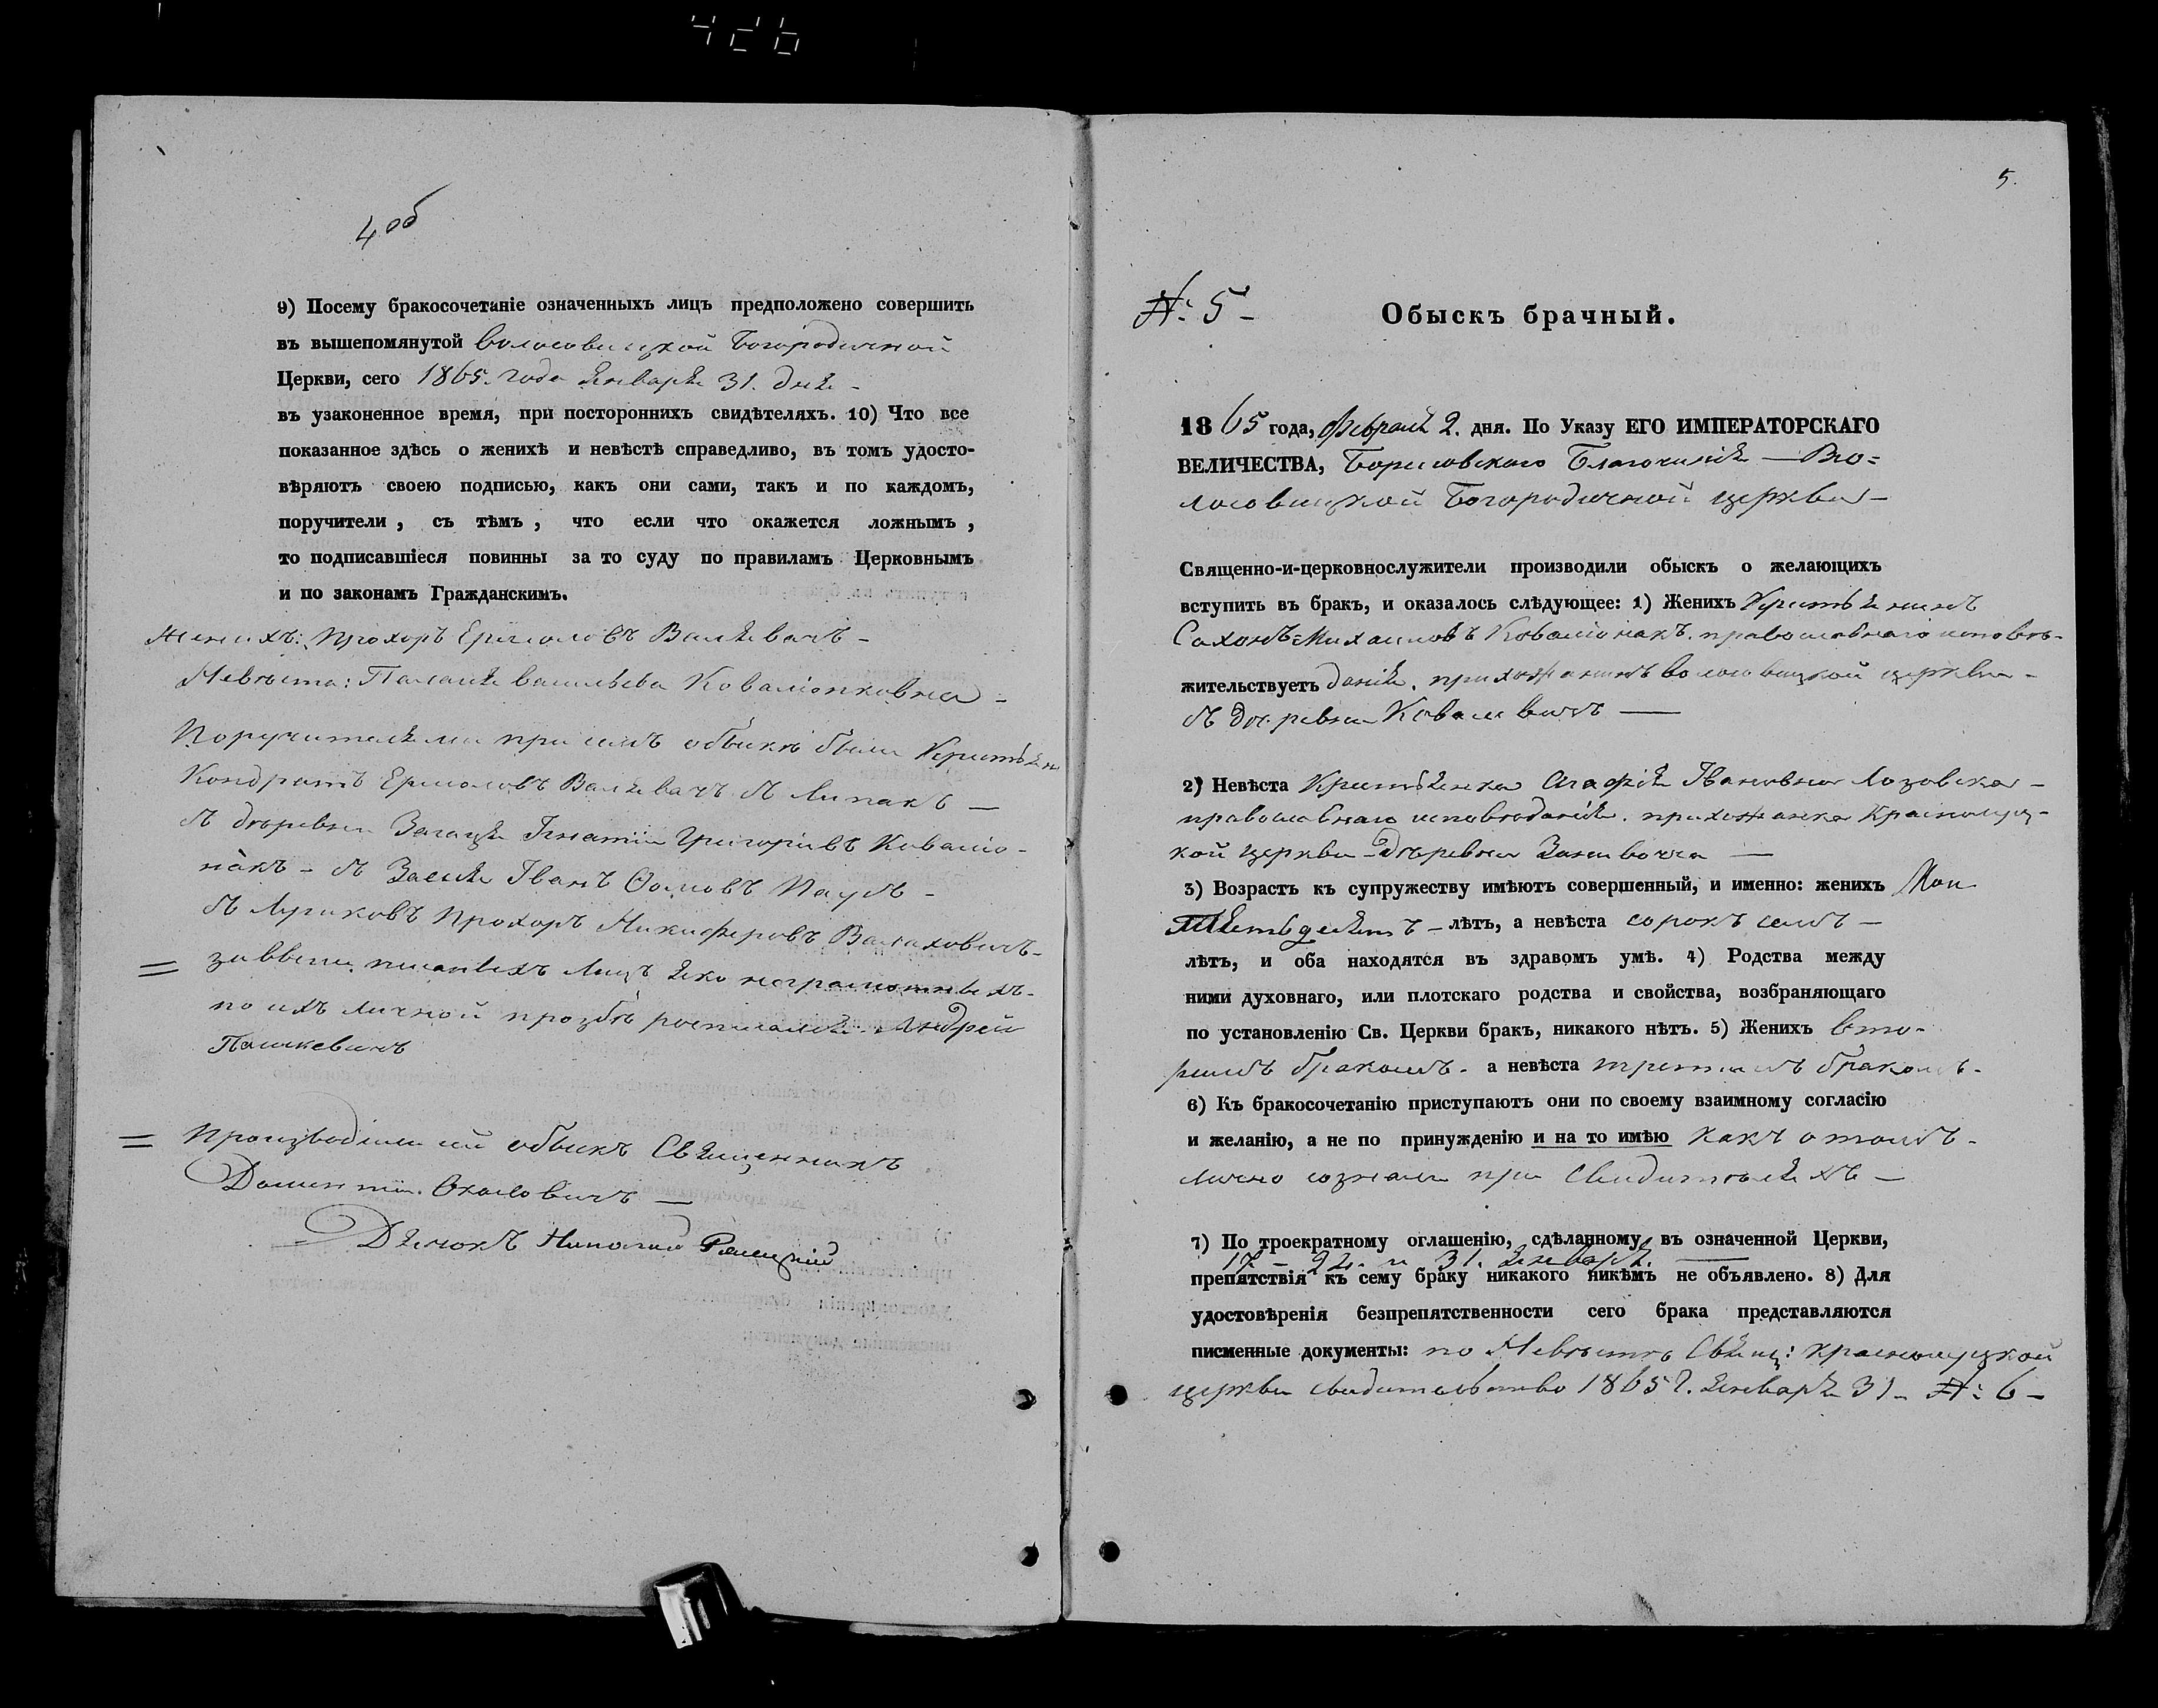 4 об
9) Посему бракосочетаніе означенныхъ лицъ предположено совершить
въ вышепомянутой Волосовицкой Богородичной
Церкви, сего 1865. года Января 31. дня -
въ узаконенное время, при постороннихъ свидѣтеляхъ. 10) Что все
показанное здѣсь о женихѣ и невѣстѣ справедливо, въ томъ удосто-
вѣряютъ своею подписью, какъ они сами, такъ и по каждомъ,
поручители, съ тѣмъ, что если что окажется ложнымъ,
то подписавшіеся повинны за то суду по правиламъ Церковнымъ
и по законамъ Гражданскимъ.
Женихъ: Прохоръ Ермоловъ Валевачъ -
Невѣста: Паланея Васильева Ковалонковна -
Поручителями при семъ обыскѣ были
Кондратъ Ермоловъ Валевачъ
Игнатій Григорьевъ Ковалио-
накъ - Иванъ Ѳомовъ
Прохоръ Никифоровъ Валаховичъ -
= за выше писанныхъ лицъ яко неграмотныхъ -
по ихъ личной прозбѣ росписался Андрей
Пашкевичъ
= Производили сей обыскъ Священникъ
Околовичъ —
Дьячокъ Николай
5.
№: 5 -
Обыскъ брачный.
1865 года, Февраля 2. дня. По Указу ЕГО ИМПЕРАТОРСКАГО
ВЕЛИЧЕСТВА, Борисовского Благочинія — Во=
лосовицкой Богородичной церкви -
Священно-и-церковнослужители производили обыскъ о желающихъ
вступить въ бракъ, и оказалось слѣдующее: 1) Женихъ Крестьянинъ
Михаиловъ Ковалионакъ. православнаго исповѣ-
жительствуетъ данія. прихожанинъ Волосовицкой церкви -
деревни Ковалевичъ —
2) Невѣста Крестьянка Агафія Ивановна Лозовска -
православнаго исповѣданія. прихожанка Краснолуц-
кой церкви - деревни
3) Возрастъ къ супружеству имѣютъ совершенный, и именно: женихъ
- лѣтъ, а невѣста сорокъ семъ -
лѣтъ, и оба находятся въ здравомъ умѣ. 4) Родства между
ними духовнаго, или плотскаго родства и свойства, возбраняющаго
по установленію Св. Церкви бракъ, никакого нѣтъ. 5) Женихъ вто-
римъ бракомъ. а невѣста третимъ бракомъ.
6) Къ бракосочетанію приступаютъ они по своему взаимному согласію
и желанію, а не по принужденію и на то имѣю какъ о томъ -
лично сознали при свидителяхъ —
7) По троекратному оглашенію, сдѣланному въ означенной Церкви,
17 - 24. и 31. Января. —
препятствія къ сему браку никакого никѣмъ не объявлено. 8) Для
удостовѣренія безпрепятственности сего брака представляются
писменные документы: по Невѣстѣ Свящ: Краснолуцкой
церкви свидительство 1865 г. Января 31 - №: 6 -